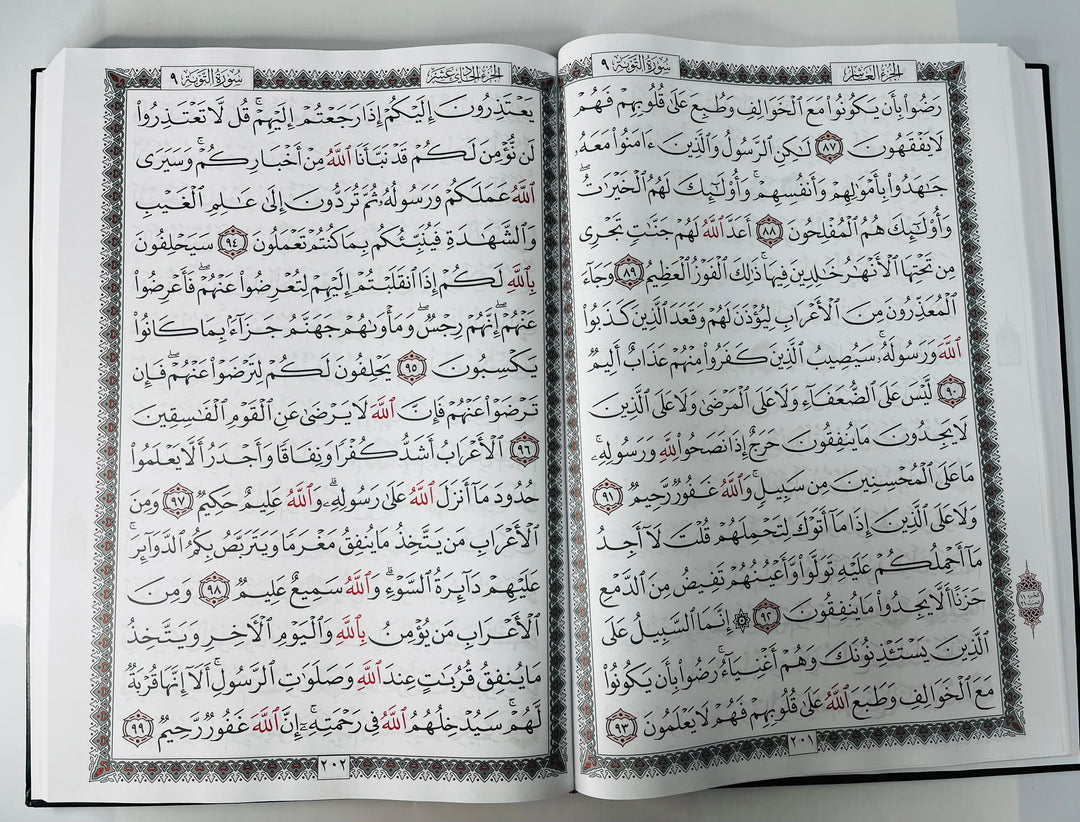 سورة التوبة ٩
الجزء العاشر
رَضُوا۟ بِأَن يَكُونُوا۟ مَعَ ٱلْخَوَالِفِ وَطُبِعَ عَلَىٰ قُلُوبِهِمْ فَهُمْ
لَا يَفْقَهُونَ ٨٧ لَـٰكِنِ ٱلرَّسُولُ وَٱلَّذِينَ ءَامَنُوا۟ مَعَهُۥ
جَـٰهَدُوا۟ بِأَمْوَٰلِهِمْ وَأَنفُسِهِمْ ۚ وَأُو۟لَـٰٓئِكَ لَهُمُ ٱلْخَيْرَٰتُ ۖ
وَأُو۟لَـٰٓئِكَ هُمُ ٱلْمُفْلِحُونَ ٨٨ أَعَدَّ ٱللَّهُ لَهُمْ جَنَّـٰتٍ تَجْرِى
مِن تَحْتِهَا ٱلْأَنْهَـٰرُ خَـٰلِدِينَ فِيهَا ۚ ذَٰلِكَ ٱلْفَوْزُ ٱلْعَظِيمُ ٨٩ وَجَآءَ
ٱلْمُعَذِّرُونَ مِنَ ٱلْأَعْرَابِ لِيُؤْذَنَ لَهُمْ وَقَعَدَ ٱلَّذِينَ كَذَبُوا۟
ٱللَّهَ وَرَسُولَهُۥ ۚ سَيُصِيبُ ٱلَّذِينَ كَفَرُوا۟ مِنْهُمْ عَذَابٌ أَلِيمٌ
٩٠ لَّيْسَ عَلَى ٱلضُّعَفَآءِ وَلَا عَلَى ٱلْمَرْضَىٰ وَلَا عَلَى ٱلَّذِينَ
لَا يَجِدُونَ مَا يُنفِقُونَ حَرَجٌ إِذَا نَصَحُوا۟ لِلَّهِ وَرَسُولِهِۦ ۚ
مَا عَلَى ٱلْمُحْسِنِينَ مِن سَبِيلٍ ۚ وَٱللَّهُ غَفُورٌ رَّحِيمٌ ٩١
وَلَا عَلَى ٱلَّذِينَ إِذَا مَآ أَتَوْكَ لِتَحْمِلَهُمْ قُلْتَ لَآ أَجِدُ
مَآ أَحْمِلُكُمْ عَلَيْهِ تَوَلَّوا۟ وَّأَعْيُنُهُمْ تَفِيضُ مِنَ ٱلدَّمْعِ
حَزَنًا أَلَّا يَجِدُوا۟ مَا يُنفِقُونَ ٩٢ ۞ إِنَّمَا ٱلسَّبِيلُ عَلَى
ٱلَّذِينَ يَسْتَـْٔذِنُونَكَ وَهُمْ أَغْنِيَآءُ ۚ رَضُوا۟ بِأَن يَكُونُوا۟
مَعَ ٱلْخَوَالِفِ وَطَبَعَ ٱللَّهُ عَلَىٰ قُلُوبِهِمْ فَهُمْ لَا يَعْلَمُونَ ٩٣
٢٠١
سورة التوبة ٩
الجزء الحادي عشر
يَعْتَذِرُونَ إِلَيْكُمْ إِذَا رَجَعْتُمْ إِلَيْهِمْ ۚ قُل لَّا تَعْتَذِرُوا۟
لَن نُّؤْمِنَ لَكُمْ قَدْ نَبَّأَنَا ٱللَّهُ مِنْ أَخْبَارِكُمْ ۚ وَسَيَرَى
ٱللَّهُ عَمَلَكُمْ وَرَسُولُهُۥ ثُمَّ تُرَدُّونَ إِلَىٰ عَـٰلِمِ ٱلْغَيْبِ
وَٱلشَّهَـٰدَةِ فَيُنَبِّئُكُم بِمَا كُنتُمْ تَعْمَلُونَ ٩٤ سَيَحْلِفُونَ
بِٱللَّهِ لَكُمْ إِذَا ٱنقَلَبْتُمْ إِلَيْهِمْ لِتُعْرِضُوا۟ عَنْهُمْ ۖ فَأَعْرِضُوا۟
عَنْهُمْ ۖ إِنَّهُمْ رِجْسٌ ۖ وَمَأْوَىٰهُمْ جَهَنَّمُ جَزَآءًۢ بِمَا كَانُوا۟
يَكْسِبُونَ ٩٥ يَحْلِفُونَ لَكُمْ لِتَرْضَوْا۟ عَنْهُمْ ۖ فَإِن
تَرْضَوْا۟ عَنْهُمْ فَإِنَّ ٱللَّهَ لَا يَرْضَىٰ عَنِ ٱلْقَوْمِ ٱلْفَـٰسِقِينَ
٩٦ ٱلْأَعْرَابُ أَشَدُّ كُفْرًا وَنِفَاقًا وَأَجْدَرُ أَلَّا يَعْلَمُوا۟
حُدُودَ مَآ أَنزَلَ ٱللَّهُ عَلَىٰ رَسُولِهِۦ ۗ وَٱللَّهُ عَلِيمٌ حَكِيمٌ ٩٧ وَمِنَ
ٱلْأَعْرَابِ مَن يَتَّخِذُ مَا يُنفِقُ مَغْرَمًا وَيَتَرَبَّصُ بِكُمُ ٱلدَّوَآئِرَ ۚ
عَلَيْهِمْ دَآئِرَةُ ٱلسَّوْءِ ۗ وَٱللَّهُ سَمِيعٌ عَلِيمٌ ٩٨ وَمِنَ
ٱلْأَعْرَابِ مَن يُؤْمِنُ بِٱللَّهِ وَٱلْيَوْمِ ٱلْـَٔاخِرِ وَيَتَّخِذُ
مَا يُنفِقُ قُرُبَـٰتٍ عِندَ ٱللَّهِ وَصَلَوَٰتِ ٱلرَّسُولِ ۚ أَلَآ إِنَّهَا قُرْبَةٌ
لَّهُمْ ۚ سَيُدْخِلُهُمُ ٱللَّهُ فِى رَحْمَتِهِۦٓ ۗ إِنَّ ٱللَّهَ غَفُورٌ رَّحِيمٌ ٩٩
٢٠٢